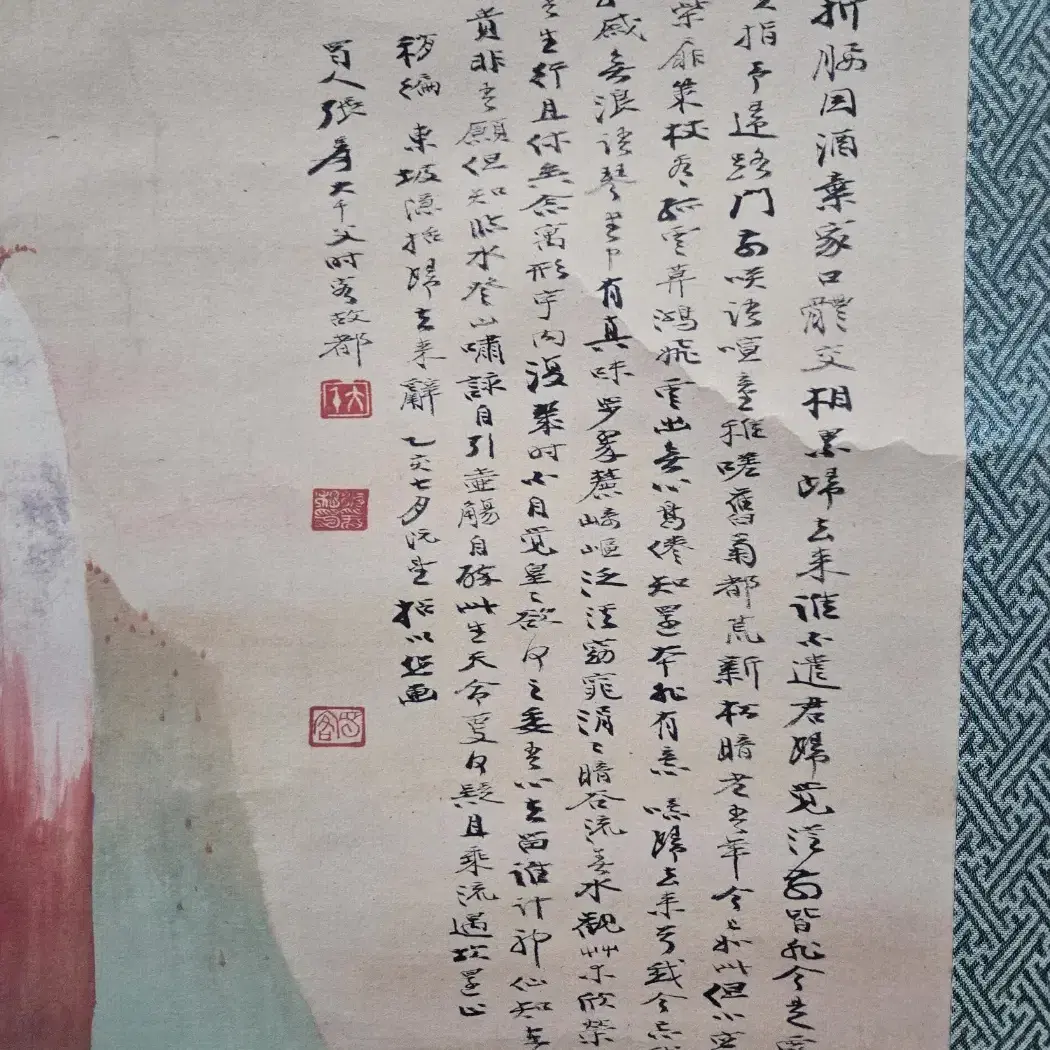 折腰因酒棄家口體交相累歸去來誰不遣君歸覺從前皆非今是露
指予歸路門前咲語喧童稚嗟舊菊都荒新松暗老吾年今已如此但小窗
柴扉策杖看孤雲暮鴻飛雲出無心鳥倦知還本非有意噫歸去來兮我今忘
感無浪語琴書中有真味步翠麓崎嶇泛溪窈窕涓〻暗谷流春水觀艸木欣榮
生行且休矣念寓形宇內復幾時不自覓皇〻欲何之委吾心去留誰計神仙知在
貴非吾願但知臨水登山嘯詠自引壺觴自醉此生天命更何疑且乘流遇坎還止
稍編 東坡檃括歸去來辭 乙亥七月既望 括以題畫
蜀人張爰大千父時客故都